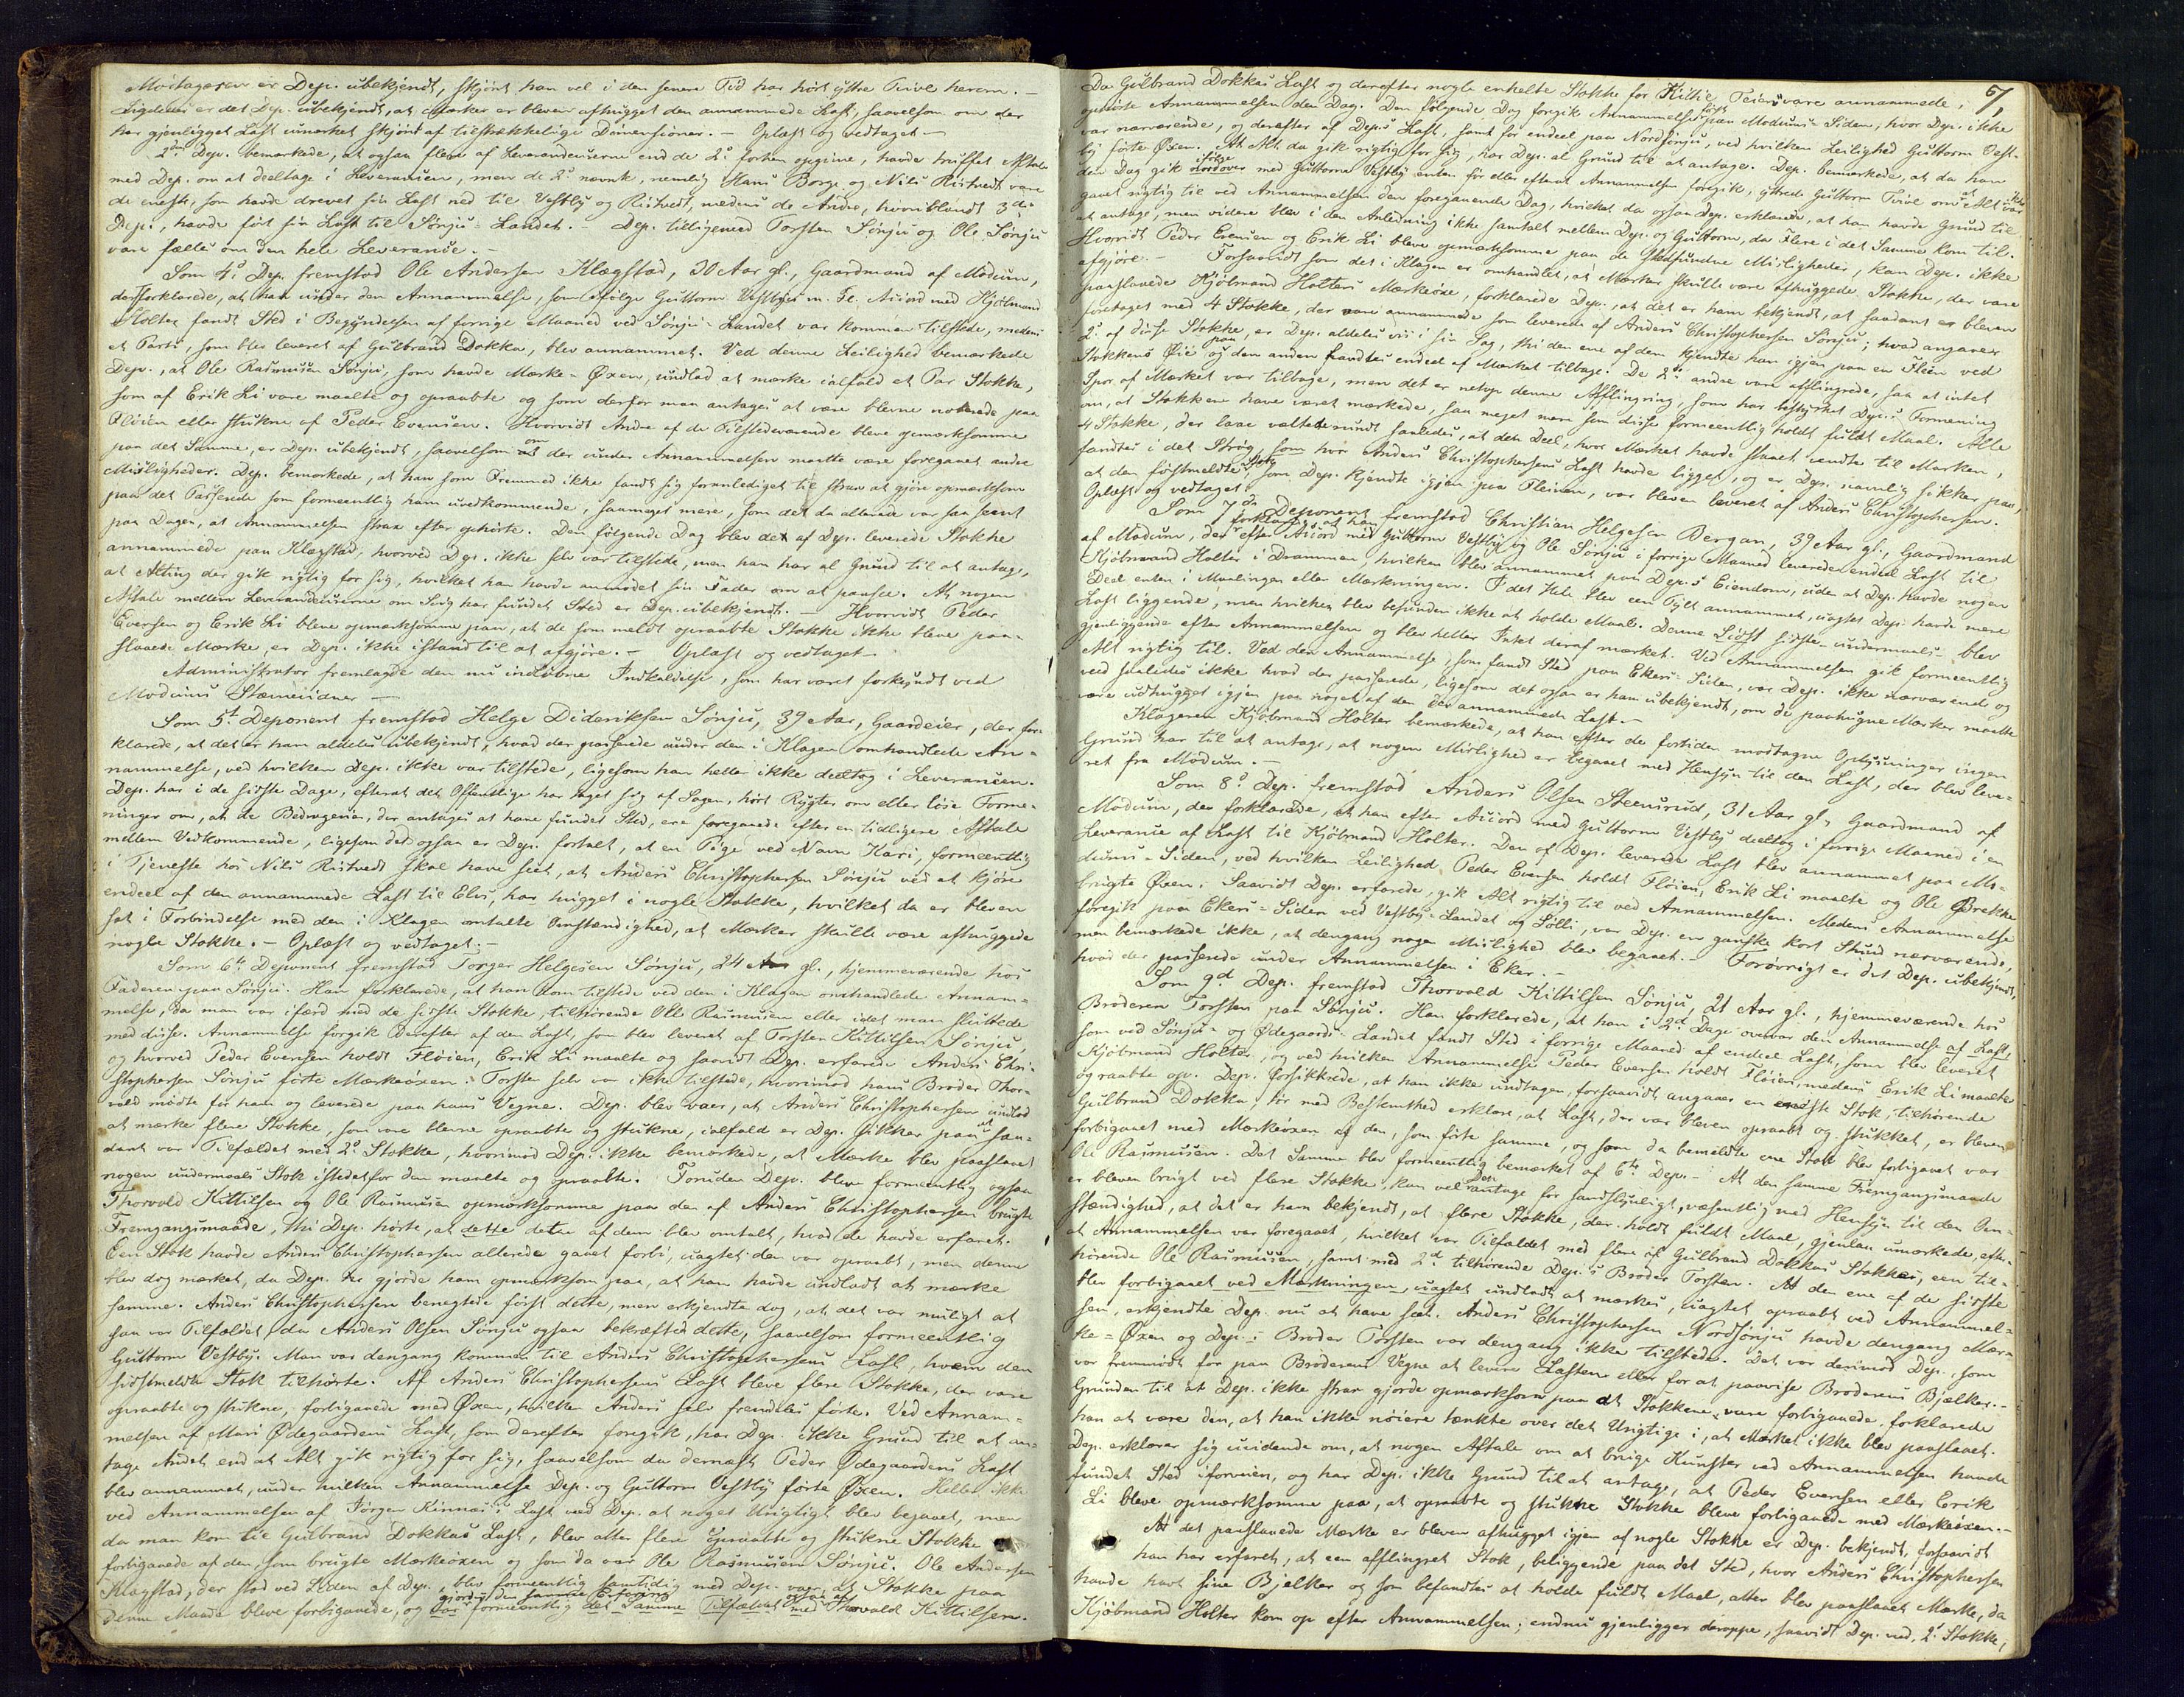 Modtageren er Dep. ubekjendt, skjönt han vel i den senere Tid har hört yttre Tvivl herom. –
Ligeledes er det Dep. ubekjendt, at Mærker er bleven afhugget den annammede Last, saavelsom om der
har gjenligget Last umærket skjönt af tilstrækkelige Dimensioner. – Oplæst og vedtaget. –
Dep. bemærkede, at ogsaa flere af Leverandeurerne end de 2de forhen opgivne, havde truffet Aftale
med Dep. om at deeltage i Leverancen, men de 2de nævnte, nemlig Hans Borge og Nils Ristvedt vare
de eneste, som havde drevet sin Last ned til Vestby og Ristvedt, medens de Andre, hvoriblandt 3die
Dep., havde fört sin Last til Sönju-Landet. – Dep. tilligemed Torsten Sönju og Ole Sönju
vare fælles om den hele Leverance. –
Som 4de Dep. fremstod Ole Andersen Klægstad, 30 Aar gl., Gaardmand af Modum,
der forklarede, at han under den Annammelse, som ifölge Guttorm Vestbys m. Fl. Accord med Kjöbmand
Holter fandt Sted i Begyndelsen af forrige Maaned ved Sönju-Landet var kommen tilstede, medens
et Parti, som blev leveret af Gulbrand Dokka, blev annammet. Ved denne Leilighed bemærkede
Dep., at Ole Rasmussen Sönju, som havde Mærke-Öxen, undlod at mærke ialfald et Par Stokke,
som af Erik Li vare maalte og opraabte og som derfor maa antages at være blevne noterede paa
Flöien eller stukne af Peder Evensen. Hvorvidt Andre af de Tilstedeværende bleve opmærksomme
paa det Samme, er Dep. ubekjendt, saavelsom om der under Annammelsen maatte være foregaaet andre
Misligheder. Dep. bemærkede, at han som Fremmed ikke fandt sig foranlediget til strax at gjöre opmærksom
paa det Passerede som formeentlig ham uvedkommende, saameget mere, som det da allerede var saa seent
paa Dagen, at Annammelsen strax efter ophörte. Den fölgende Dag blev de af Dep. leverede Stokke
annammede paa Klægstad, hvorved Dep. ikke selv var tilstede, men han har al Grund til at antage,
at Alting der gik rigtig for sig, hvilket han havde anmodet sin Fader om at paasee. At nogen
Aftale mellem Leverandeurerne om Svig har fundet Sted er Dep. ubekjendt. – Hvorvidt Peder
Evensen og Erik Li bleve opmærksomme paa, at de som meldt opraabte Stokke ikke bleve paa-
slaaede Mærke, er Dep. ikke istand til at afgjöre. – Oplæst og vedtaget –
Administrator fremlagde den nu indlöbne Indkaldelse, som har været forkyndt ved
Modums Stævnevidner –
Som 5te Deponent fremstod Helge Dideriksen Sönju, 39 Aar, Gaardeier, der for-
klarede, at det er ham aldeles ubekjendt, hvad der passerede under den i Klagen omhandlede An-
nammelse, ved hvilken Dep. ikke var tilstede, ligesom han heller ikke deeltog i Leverancen.
Dep. har i de sidste Dage, efterat det Offentlige har taget sig af Sagen, hört Rygter om eller löse Forme-
ninger om, at de Bedragerier, der antages at have fundet Sted, ere foregaaede efter en tidligere Aftale
mellem Vedkommende, ligesom det ogsaa er Dep. fortalt, at en Pige ved Navn Kari, formeentlig
i Tjeneste hos Nils Ristvedt skal have seet, at Anders Christophersen Sönju ved at kjöre
endeel af den annammede Last til Elv, har hugget i nogle Stokke, hvilket da er bleven
sat i Forbindelse med den i Klagen omtalte Omstændighed, at Mærker skulle være afhuggede
nogle Stokke. – Oplæst og vedtaget. –
Som 6te Deponent fremstod Torger Helgesen Sönju, 24 Aar gl., hjemmeværende hos
Faderen paa Sönju. Han forklarede, at han kom tilstede ved den i Klagen omhandlede Annam-
melse, da man var ifærd med de sidste Stokke, tilhörende Ole Rasmussen eller idet man sluttede
med disse. Annammelse foregik derefter af den Last, som blev leveret af Torsten Kittilsen Sönju,
og hvorved Peder Evensen holdt Flöien, Erik Li maalte og saavidt Dep. erfarede Anders Chri-
stophersen Sönju förte Mærkeöxen. Torsten selv var ikke tilstede, hvorimod hans Broder Thor-
vald mödte for ham og leverede paa hans Vegne. Dep. blev vaer, at Anders Christophersen undlod
at mærke flere Stokke, som vare blevne opraabte og stukne, ialfald er Dep. sikker paa at saa-
dant var Tilfældet med 2de Stokke, hvorimod Dep. ikke bemærkede, at Mærke blev paaslaaet
nogen undermaals Stok istedetfor den maalte og opraabte. Foruden Dep. bleve formeentlig ogsaa
Thorvald Kittilsen og Ole Rasmussen opmærksomme paa den af Anders Christophersen brugte
Fremgangsmaade, thi Dep. hörte, at dette af dem blev omtalt, hvad de havde erfaret.
Een Stok havde Anders Christophersen allerede gaaet forbi, uagtet den var opraabt, men denne
blev dog mærket, da Dep. gjorde ham opmærksom paa, at han havde undladt at mærke
samme. Anders Christophersen benegtede först dette, men erkjendte dog, at det var muligt at
saa var Tilfældet, da Anders Olsen Sönju ogsaa bekræftede dette, saavelsom formeentlig
Guttorm Vestby. Man var dengang kommen til Anders Christophersens Last, hvem den
sidstmeldte Stok tilhörte. Af Anders Christophersens Last bleve flere Stokke, der vare
opraabte og stukne, forbigaaede med Öxen, hvilken Anders selv fremdeles förte. Ved Annam-
melsen af Mari Ödegaardens Last, som derefter foregik, har Dep. ikke Grund til at an-
tage Andet end at Alt gik rigtig for sig, saavelsom da dernæst Peder Ödegaardens Last
blev annammet, under hvilken Annammelse Dep. og Guttorm Vestby förte Öxen. Heller ikke
ved Annammelsen af Jörgen Kinnas's Last ved Dep. at noget Urigtigt blev begaaet, men
da man kom til Gulbrand Dokkas Last, blev atter flere opraabte og stukne Stokke
forbigaaede af den, som brugte Mærkeöxen og som da var Ole Rasmussen Sönju. Ole Andersen
Klægstad, der stod ved Siden af Dep., blev formeentlig samtidig med Dep. vaer, at Stokke paa
gjordes den samme Erfaring ogsaa af
denne Maade bleve forbigaaede, og var formeentlig det Samme Tilfældet med Thorvald Kittilsen.
67
Da Gulbrand Dokkas Last og derefter nogle enkelte Stokke for Kittil Teiers vare annammede,
ophörte Annammelsen den Dag. Den fölgende Dag foregik Annammelse först paa Modums-Siden, hvor Dep. ikke
var nærværende, og derefter af Dep.s Last, samt for endeel paa Nordsönju, ved hvilken Leilighed Guttorm Vest-
by förte Öxen. At Alt da gik rigtig for sig, har Dep. al Grund til at antage. Dep. bemærkede, at da han
den Dag gik ifölge med Guttorm Vestby enten för eller efterat Annammelsen foregik, yttrede Guttorm Tvivl om at Alt var
gaaet rigtig til ved Annammelsen den foregaaende Dag, hvilket da ogsaa Dep. erklærede, at han havde Grund til
at antage, men videre blev i den Anledning ikke samtalt mellem Dep. og Guttorm, da Flere i det Samme kom til.
Hvorvidt Peder Evensen og Erik Li bleve opmærksomme paa de stedfundne Misligheder, kan Dep. ikke
afgjöre. – Forsaavidt som det i Klagen er omhandlet, at Mærker skulle være afhuggede Stokke, der vare
paaslaaede Kjöbmand Holters Mærkeöxe, forklarede Dep., at det er ham bekjendt, at saadant er bleven
foretaget med 4 Stokke, der vare annammede som leverede af Anders Christophersen Sönju; hvad angaaer
2de af disse Stokke, er Dep. aldeles vis i sin Sag, thi den ene af dem kjendte han igjen paa en Flein ved
Stokkens Öie og paa den anden fandtes endeel af Mærket tilbage. De 2de andre vare afflingrede, saa at intet
Spor af Mærket var tilbage, men det er netop denne Afflingring, som har bestyrket Dep.s Formening
om, at Stokkene have været mærkede, saa meget mere som disse formeentlig holdt fuldt Maal. Alle
4 Stokke, der laae væltede rundt saaledes, at den Deel, hvor Mærket havde staaet vendte til Marken,
fandtes i det Strög, som hvor Anders Christophersens Last havde ligget, og er Dep. navnlig sikker paa,
at den förstmeldte Stok, som Dep. kjendte igjen paa Fleinen, var bleven leveret af Anders Christophersen.
Oplæst og vedtaget.
Som 7de Deponent fremstod Christian Helgesen Bergan, 39 Aar gl., Gaardmand
af Modum, der forklarede, at han efter Accord med Guttorm Vestby og Ole Sönju i forrige Maaned leverede endeel Last til
Kjöbmand Holter i Drammen, hvilken blev annammet paa Dep.s Eiendom, uden at Dep. havde nogen
Deel enten i Maalingen eller Mærkningen. I det Hele blev een Tylt annammet, uagtet Dep. havde mere
Last liggende, men hvilken blev befunden ikke at holde Maal. Denne sidste undermaals- blev
gjenliggende efter Annammelsen og blev heller Intet deraf mærket. Ved Annammelsen gik formeentlig
Alt rigtig til. Ved den Annammelse, som fandt Sted paa Ekers-Siden, var Dep. ikke nærværende og
ved saaledes ikke hvad der passerede, ligesom det ogsaa er ham ubekjendt, om de paahugne Mærker maatte
være udhugget igjen paa noget af den der annammede Last. –
Klageren Kjöbmand Holter bemærkede, at han efter de fortiden modtagne Oplysninger ingen
Grund har til at antage, at nogen Mislighed er begaaet med Hensyn til den Last, der blev leve-
ret fra Modum. –
Som 8de Dep. fremstod Anders Olsen Steensrud, 31 Aar gl., Gaardmand af
Modum, der forklarede, at han efter Accord med Guttorm Vestby deeltog i forrige Maaned i en
Leverance af Last til Kjöbmand Holter. Den af Dep. leverede Last blev annammet paa Mo-
dums-Siden, ved hvilken Leilighed Peder Evensen holdt Flöien, Erik Li maalte og Ole Brekke
brugte Öxen. Saavidt Dep. erfarede, gik Alt rigtig til ved Annammelsen. Medens Annammelse
foregik paa Ekers-Siden ved Vestby-Landet og Solli, var Dep. en ganske kort Stund nærværende,
men bemærkede ikke, at dengang nogen Mislighed blev begaaet. – Forövrigt er det Dep. ubekjendt,
hvad der passerede under Annammelsen i Eker. –
Som 9de Dep. fremstod Thorvald Kittilsen Sönju, 21 Aar gl., hjemmeværende hos
Broderen Torsten paa Sönju. Han forklarede, at han i 2de Dage overvar den Annammelse af Last,
som ved Sönju- og Ödegaards-Landet fandt Sted i forrige Maaned af endeel Last, som blev leveret
Kjöbmand Holter, og ved hvilken Annammelse Peder Evensen holdt Flöien, medens Erik Li maalte
og raabte op. Dep. forsikkrede, at han ikke undtagen forsaavidt angaaer en eneste Stok, tilhörende
Gulbrand Dokka, tör med Bestemthed erklære, at Last, der var bleven opraabt og stukket, er bleven
forbigaaet med Mærkeöxen af den, som förte samme, og som da bemeldte ene Stok blev forbigaaet var
Ole Rasmussen. Det Samme blev formeentlig bemærket af 6te Dep. – At den samme Fremgangsmaade
er bleven brugt ved flere Stokke, kan vel Dep. antage for sandsynligt, væsentlig med Hensyn til den Om-
stændighed, at det er ham bekjendt, at flere Stokke, der holdt fuldt Maal, gjenlaae umærkede, efter-
at Annammelsen var foregaaet, hvilket var Tilfældet med flere af Gulbrand Dokkas Stokke, een til-
hörende Ole Rasmussen, samt med 2de tilhörende Dep.s Broder Torsten. At den ene af de sidste
blev forbigaaet ved Mærkningen, uagtet undladt at mærkes, uagtet opraabt ved Annammel-
sen, erkjendte Dep. nu at have seet. Anders Christophersen Nordsönju havde dengang Mær-
ke-Öxen og Dep.s Broder Torsten var dengang ikke tilstede. Det var derimod Dep., som
var fremmödt for paa Broderens Vegne at levere Lasten eller for at paavise Broderens Bjælker. –
Grunden til at Dep. ikke strax gjorde opmærksom paa at Stokkene vare forbigaaede, forklarede
han at være den, at han ikke nöiere tænkte over det Urigtige i, at Mærket ikke blev paaslaaet.
Dep. erklærer sig uvidende om, at nogen Aftale om at bruge Kunster ved Annammelsen havde
fundet Sted iforveien, og har Dep. ikke Grund til at antage, at Peder Evensen eller Erik
Li bleve opmærksomme paa, at opraabte og stukne Stokke bleve forbigaaede med Mærkeöxen. –
At det paaslaaede Mærke er bleven afhugget igjen af nogle Stokke er Dep. bekjendt, forsaavidt
han har erfaret, at een afflingret Stok, beliggende paa det Sted, hvor Anders Christophersen
havde havt sine Bjelker og som befandtes at holde fuldt Maal, atter blev paaslaaet Mærke, da
Kjöbmand Holter kom op efter Annammelsen; endnu gjenligger deroppe, saavidt Dep. ved, 2de Stokke,